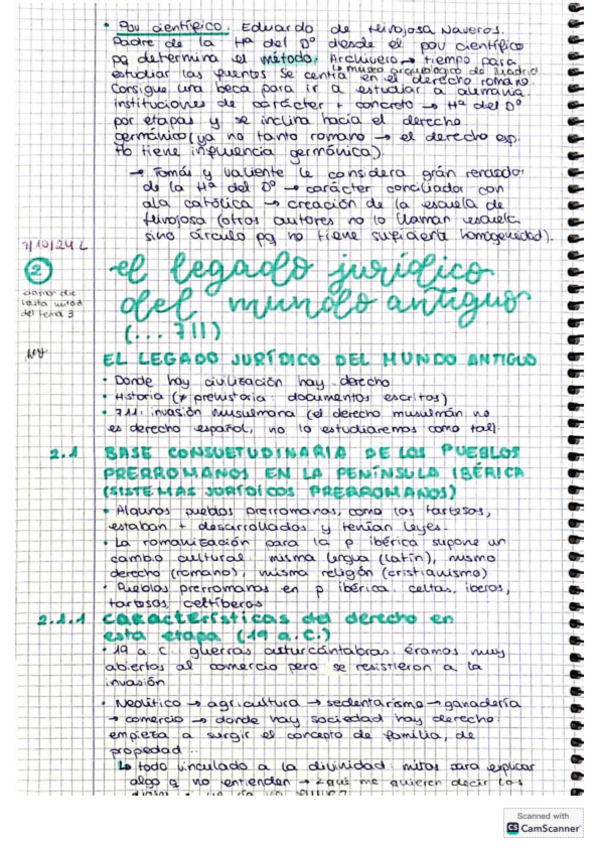 • Pov científico. Eduardo de Hinojosa Naveros.
Padre de la Hª del Dº desde el pov científico
pq determina el método. Archivero → tiempo para
↳ museo arqueológico de Madrid
estudiar las fuentes se centra en el derecho romano.
Consigue una beca para ir a estudiar a alemania.
instituciones de carácter + concreto → Hª del Dº
por etapas y se inclina hacia el derecho
germánico (ya no tanto romano → el derecho esp.
tiene influencia germánica).
→ Tomás y Valiente le considera grán
de la Hª del Dº → carácter conciliador con
ala católica → creación de la escuela de
Hinojosa (otros autores no lo llaman escuela
sino círculo pq no tiene suficiente homogeneidad).
7/10/24 L
2
el legado jurídico
del mundo antiguo
(... 711)
del tema 3
EL LEGADO JURÍDICO DEL MUNDO ANTIGUO
• Donde hay civilización hay derecho
• Historia (≠ prehistoria: documentos escritos)
• 711: invasión musulmana (el derecho musulmán no
es derecho español, no lo estudiaremos como tal).
2.1 BASE CONSUETUDINARIA DE LOS PUEBLOS
PRERROMANOS EN LA PENÍNSULA IBÉRICA
(SISTEMAS JURÍDICOS PRERROMANOS)
• Algunos pueblos prerromanos, como los tartesos,
estaban + desarrollados y tenían leyes.
• La romanización para la p ibérica supone un
cambio cultural: misma lengua (latín), mismo
derecho (romano), misma religión (cristianismo)
• Pueblos prerromanos en p ibérica: celtas, iberos,
tartesos, celtíberos
2.1.1 Características del derecho en
esta etapa (19 a.C.)
• 19 a.C. guerras asturcántabras. éramos muy
abiertos al comercio pero se resistieron a la
invasión
• Neolítico → agricultura → sedentarismo → ganadería
→ comercio → donde hay sociedad hay derecho.
empieza a surgir el concepto de familia, de
propiedad...
↳ todo vinculado a la divinidad: mitos para explicar
algo q no entienden → ¿qué me quieren decir los
Scanned with
CS CamScanner